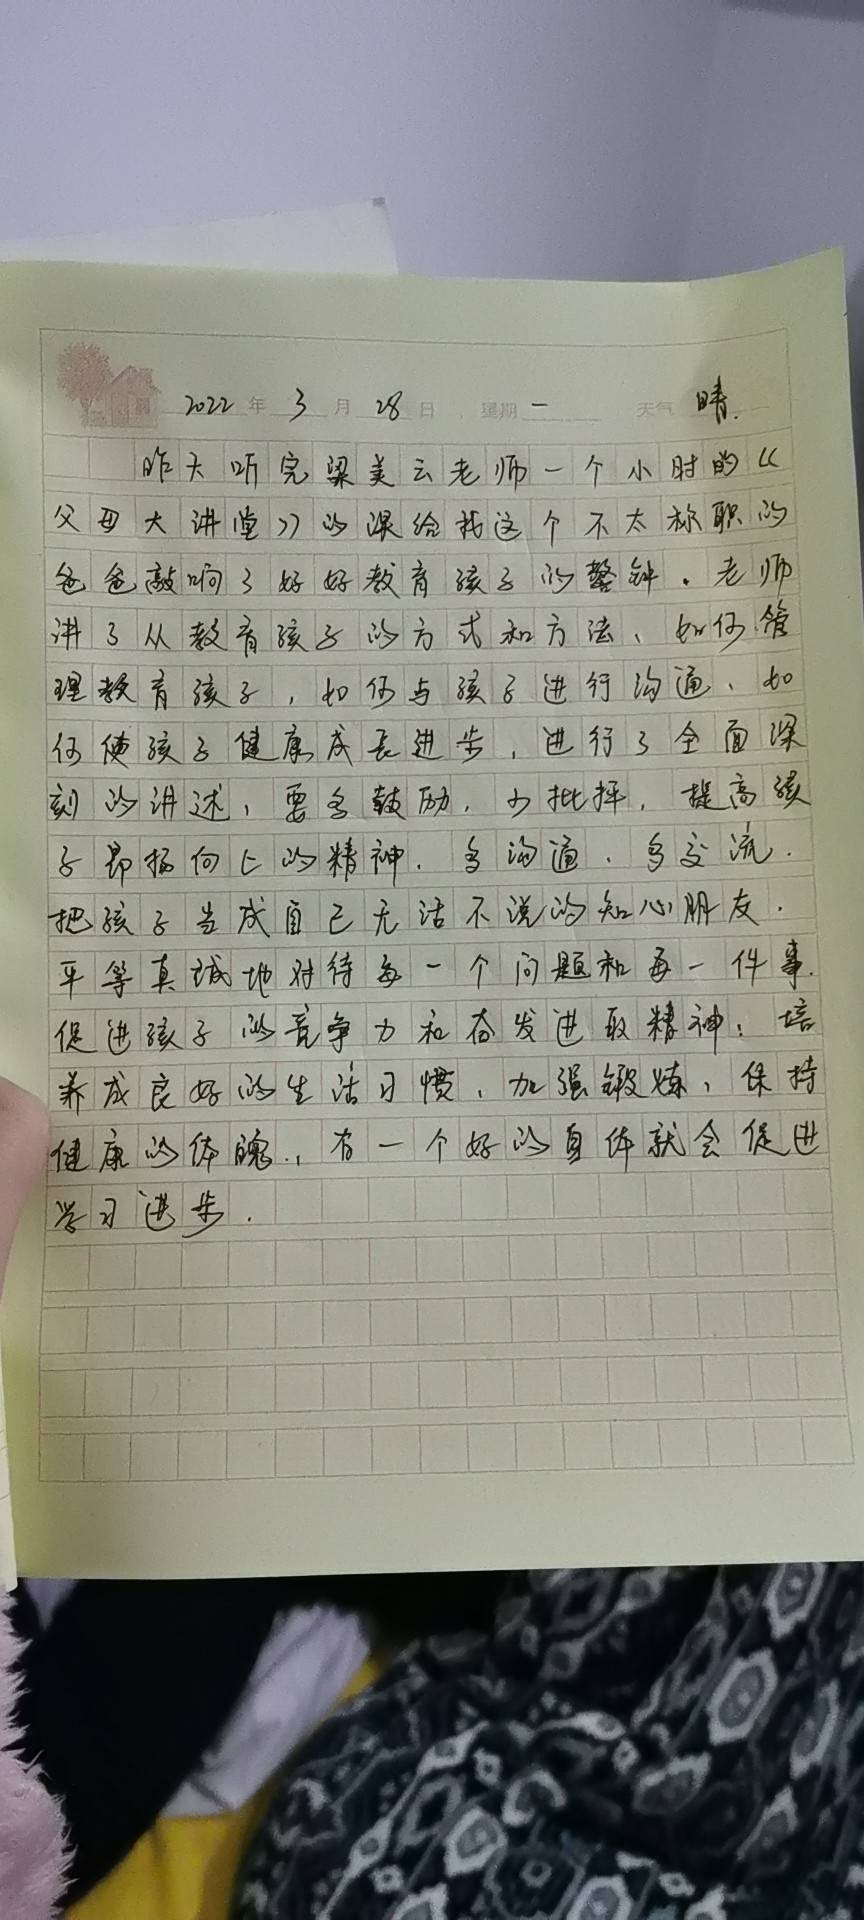 2022年3月28日,星期一 天气 晴.
昨天听完梁美云老师一个小时的《
父母大讲堂》的课给我这个不太称职的
爸爸敲响了好好教育孩子的警钟。老师
讲了从教育孩子的方式和方法、如何管
理教育孩子,如何与孩子进行沟通、如
何使孩子健康成长进步,进行了全面深
刻的讲述,要多鼓励,少批抨,提高孩
子昂扬向上的精神.多沟通、多交流.
把孩子当成自己无话不说的知心朋友.
平等真诚地对待每一个问题和每一件事.
促进孩子的竞争力和奋发进取精神;培
养成良好的生活习惯,加强锻炼,保持
健康的体魄.,有一个好的身体就会促进
学习进步.